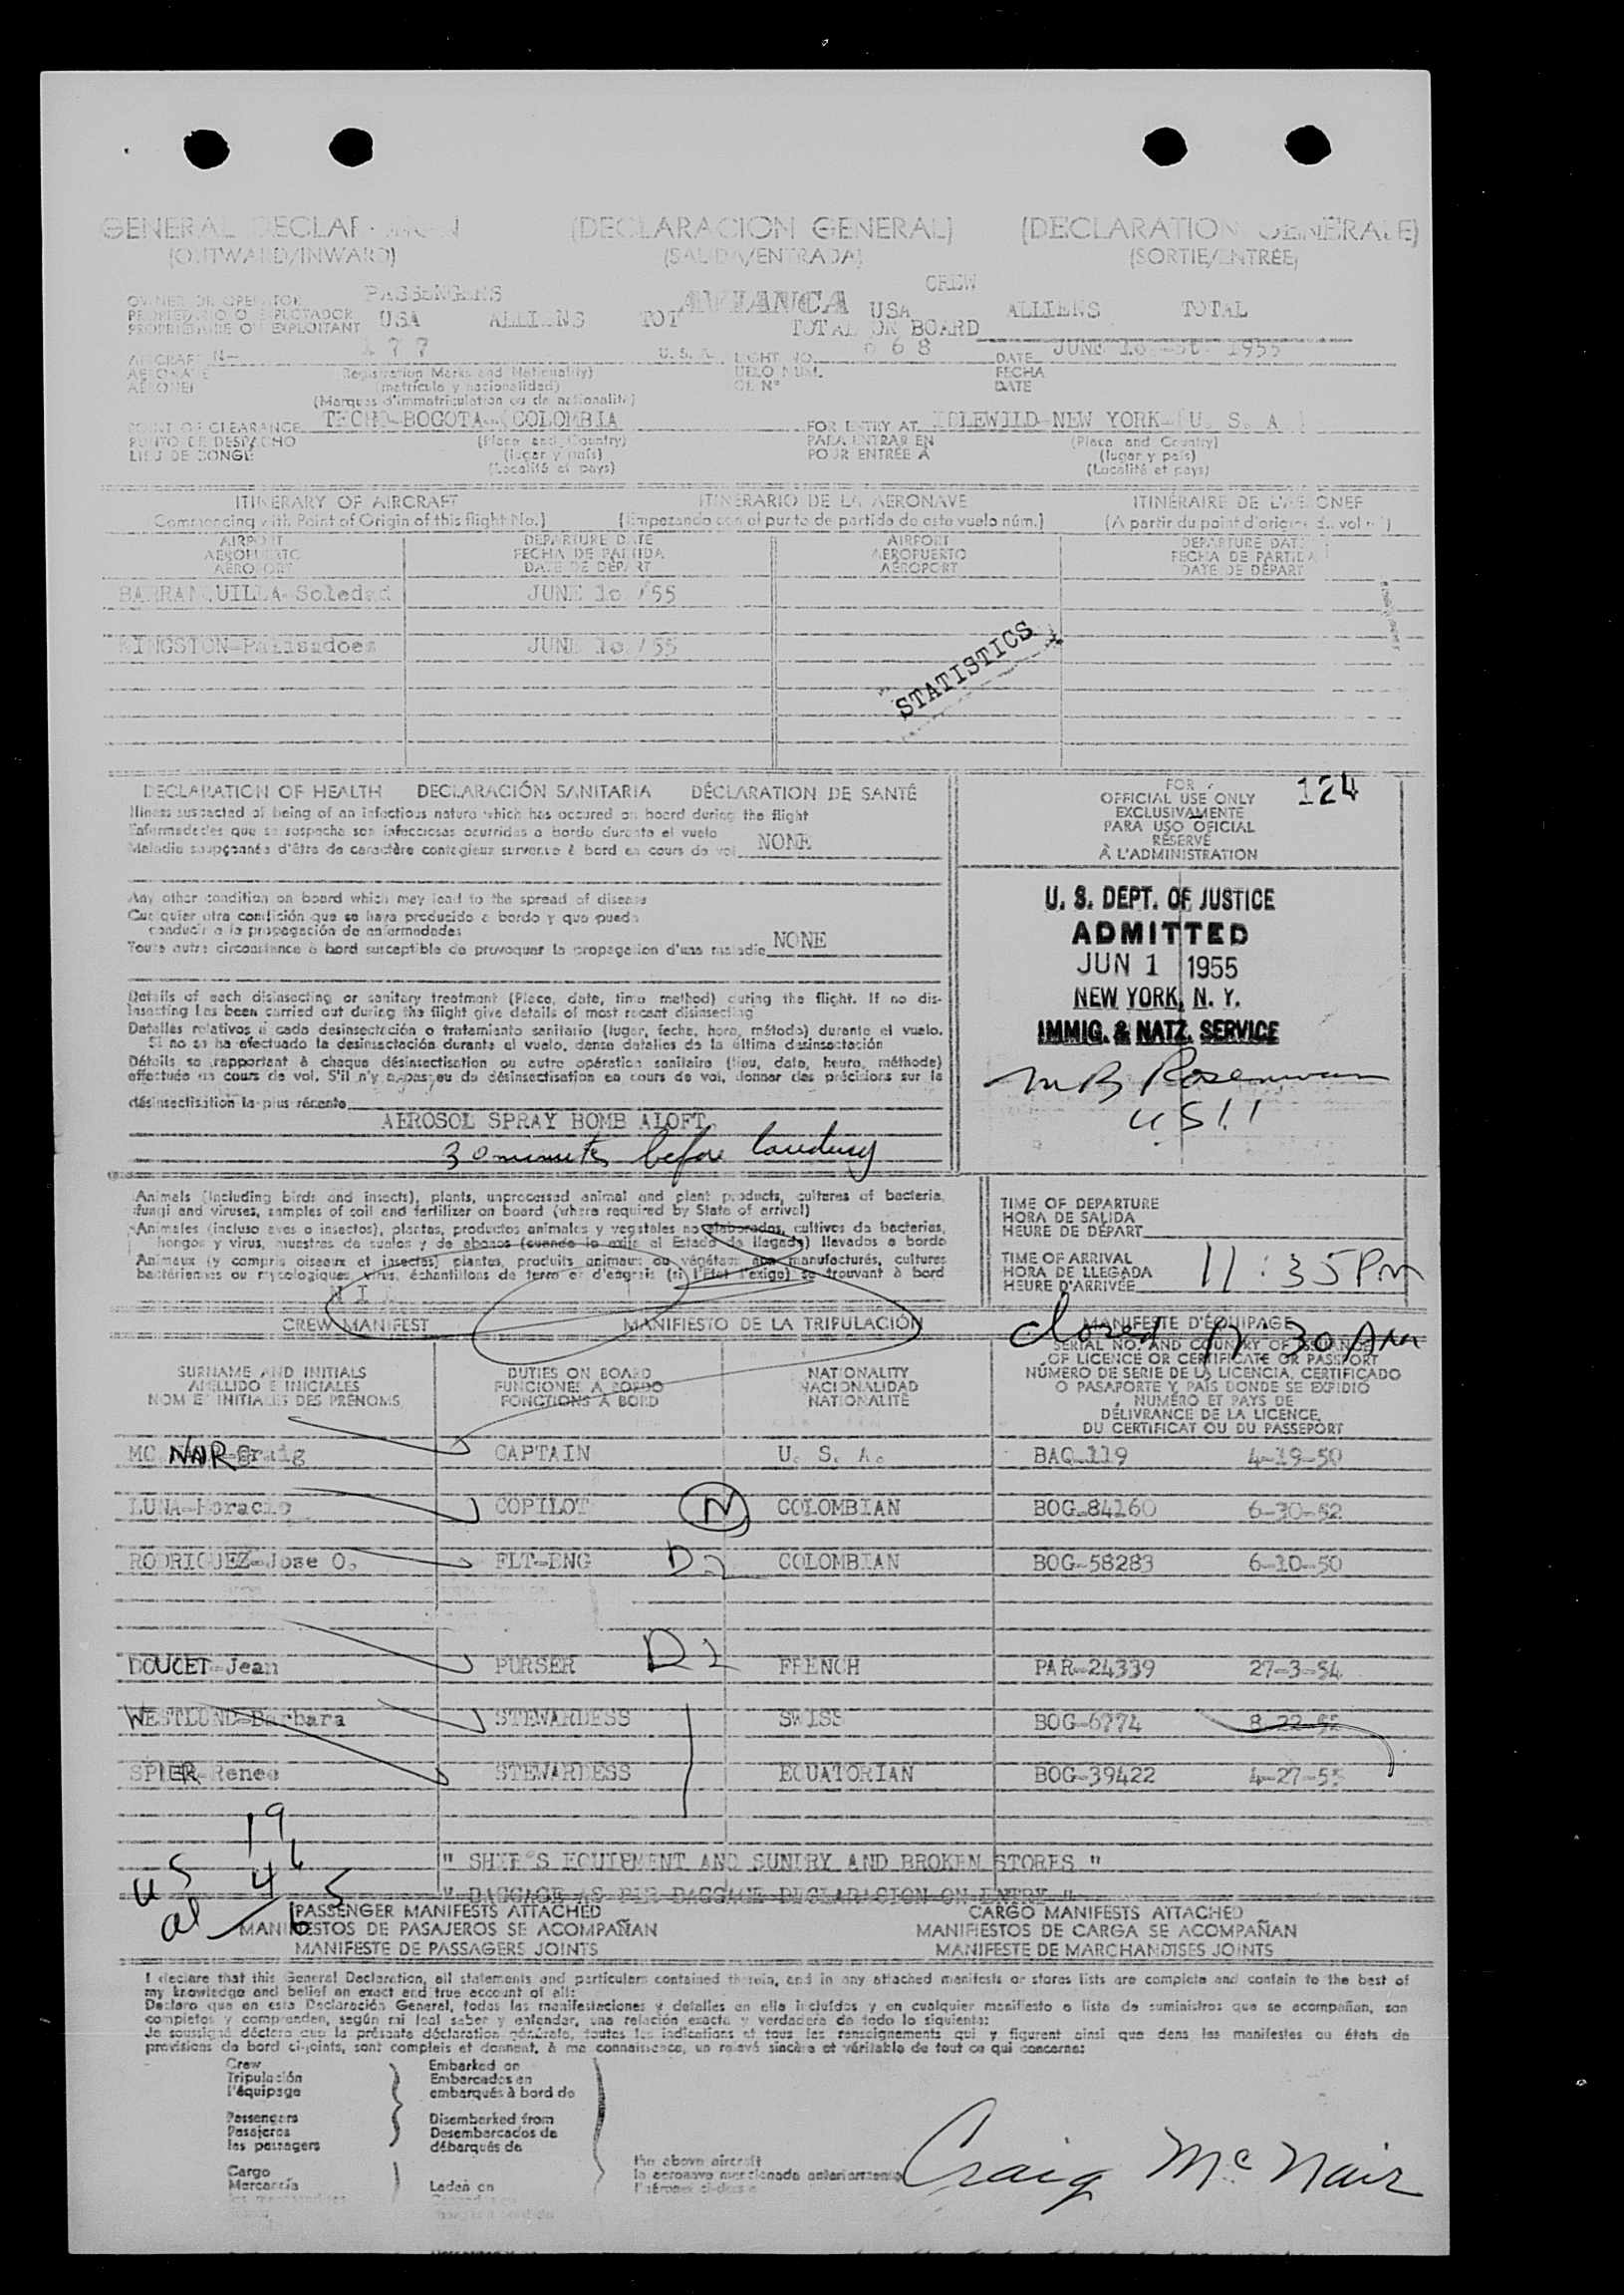 GENERAL DECLARATION (DECLARACION GENERAL) (DECLARATION GENERALE)
(OUTWARD/INWARD) (SALIDA/ENTRADA) (SORTIE/ENTRÉE)
PASSENGERS CREW
OWNER OR OPERATOR AVIANCA
PROPIETARIO O EXPLOTADOR USA ALLIENS TOT USA ALLIENS TOTAL
PROPRIETAIRE OU EXPLOITANT TOTAL ON BOARD
AIRCRAFT N- 177 U. S. A. FLIGHT NO. 668 DATE JUNE 1o -st- 1955
(Registration Marks and Nationality) FECHA
(matrícula y nacionalidad) DATE
(Marques d'immatriculation ou de nationalité)
POINT OF CLEARANCE TECHO-BOGOTA-(COLOMBIA FOR ENTRY AT IDLEWILD-NEW YORK-(U. S. A )
PUNTO DE DESPACHO (Place and Country) PARA ENTRAR EN (Place and Country)
LIEU DE CONGE (lugar y país) POUR ENTREE A (lugar y país)
(Localité et pays) (Localité et pays)
ITINERARY OF AIRCRAFT ITINERARIO DE LA AERONAVE ITINÉRAIRE DE L'AERONEF
(Commencing with Point of Origin of this flight No.) (Empezando con el punto de partida de este vuelo núm.) (A partir du point d'origine du vol nº)
AIRPORT DEPARTURE DATE AIRPORT DEPARTURE DATE
AEROPUERTO FECHA DE PARTIDA AEROPUERTO FECHA DE PARTIDA
AÉROPORT DATE DE DÉPART AÉROPORT DATE DE DÉPART
BARRANQUILLA-Soledad JUNE 1o /55
KINGSTON-Palisadoes JUNE 1o /55
STATISTICS
DECLARATION OF HEALTH DECLARACIÓN SANITARIA DÉCLARATION DE SANTÉ
Illness suspected of being of an infectious nature which has occured on board during the flight
Enfermedades que se sospecha son infecciosas ocurridas a bordo durante el vuelo
Maladie soupçonnée d'être de caractère contagieux survenue à bord en cours de vol NONE
FOR 124
OFFICIAL USE ONLY
EXCLUSIVAMENTE
PARA USO OFICIAL
RÉSERVÉ
À L'ADMINISTRATION
Any other condition on board which may lead to the spread of disease
Cualquier otra condición que se haya producido a bordo y que pueda
conducir a la propagación de enfermedades
Toute autre circonstance à bord susceptible de provoquer la propagation d'une maladie NONE
U. S. DEPT. OF JUSTICE
ADMITTED
JUN 1 1955
NEW YORK, N. Y.
IMMIG. & NATZ. SERVICE
Details of each disinsecting or sanitary treatment (Place, date, time method) during the flight. If no dis-
insecting has been carried out during the flight give details of most recent disinsecting
Detalles relativos a cada desinsectación o tratamiento sanitario (lugar, fecha, hora, método) durante el vuelo.
Si no se ha efectuado la desinsectación durante el vuelo, dense detalles de la última desinsectación
Détails se rapportant à chaque désinsectisation ou autre opération sanitaire (lieu, date, heure, méthode)
effectuée au cours de vol. S'il n'y a pas eu de désinsectisation en cours de vol, donner des précisions sur la
désinsectisation la plus récente
AEROSOL SPRAY BOMB ALOFT
30 minutes before landing
Animals (including birds and insects), plants, unprocessed animal and plant products, cultures of bacteria,
fungi and viruses, samples of soil and fertilizer on board (where required by State of arrival)
Animales (incluso aves o insectos), plantas, productos animales y vegetales no elaborados, cultivos de bacterias,
hongos y virus, muestras de suelos y de abonos (cuando lo exija el Estado de llegada) llevados a bordo
Animaux (y compris oiseaux et insectes) plantes, produits animaux ou végétaux non manufacturés, cultures
bactériennes ou mycologiques, virus, échantillons de terre et d'engrais (si l'Etat l'exige) se trouvant à bord
TIME OF DEPARTURE
HORA DE SALIDA
HEURE DE DÉPART
TIME OF ARRIVAL
HORA DE LLEGADA 11:35 PM
HEURE D'ARRIVÉE
CREW MANIFEST MANIFIESTO DE LA TRIPULACIÓN MANIFESTE D'ÉQUIPAGE
closed 30 AM
SURNAME AND INITIALS DUTIES ON BOARD NATIONALITY SERIAL NO. AND COUNTRY OF ISSUANCE
APELLIDO E INICIALES FUNCIONES A BORDO NACIONALIDAD OF LICENCE OR CERTIFICATE OR PASSPORT
NOM ET INITIALES DES PRÉNOMS FONCTIONS A BORD NATIONALITÉ NÚMERO DE SERIE DE LA LICENCIA, CERTIFICADO
O PASAPORTE Y PAÍS DONDE SE EXPIDIÓ
NUMÉRO ET PAYS DE
DÉLIVRANCE DE LA LICENCE,
DU CERTIFICAT OU DU PASSEPORT
MC NAR-Craig CAPTAIN U. S. A. BAQ-119 4-19-50
LUNA-Horacio COPILOT N COLOMBIAN BOG-84160 6-30-52
RODRIGUEZ-Jose O. FLT-ENG D2 COLOMBIAN BOG-58283 6-10-50
DOUCET-Jean PURSER D2 FRENCH PAR-24339 27-3-54
WESTLUND-Barbara STEWARDESS SWISS BOG-6774 8-22-52
SPIER-Renee STEWARDESS ECUATORIAN BOG-39422 4-27-55
19
" SHIP'S EQUIPMENT AND SUNDRY AND BROKEN STORES "
us 4
" BAGGAGE AS PER BAGGAGE DECLARACION ON ENTRY "
al
PASSENGER MANIFESTS ATTACHED CARGO MANIFESTS ATTACHED
MANIFIESTOS DE PASAJEROS SE ACOMPAÑAN MANIFIESTOS DE CARGA SE ACOMPAÑAN
MANIFESTE DE PASSAGERS JOINTS MANIFESTE DE MARCHANDISES JOINTS
I declare that this General Declaration, all statements and particulars contained therein, and in any attached manifests or stores lists are complete and contain to the best of
my knowledge and belief an exact and true account of all:
Declaro que en esta Declaración General, todas las manifestaciones y detalles en ella incluídos y en cualquier manifiesto o lista de suministros que se acompañan, son
completos y comprenden, según mi leal saber y entender, una relación exacta y verdadera de todo lo siguiente:
Je soussigné déclare que la présente déclaration générale, toutes les indications et tous les renseignements qui y figurent ainsi que dans les manifestes ou états de
provisions de bord ci-joints, sont complets et donnent, à ma connaissance, un relevé sincère et véritable de tout ce qui concerne:
Crew Embarked on
Tripulación Embarcados en
l'équipage embarqués à bord de
Passengers Disembarked from
Pasajeros Desembarcados de
les passagers débarqués de
the above aircraft
Cargo la aeronave mencionada anteriormente
Mercancía Laden on l'aéronef ci-dessus
Craig McNair